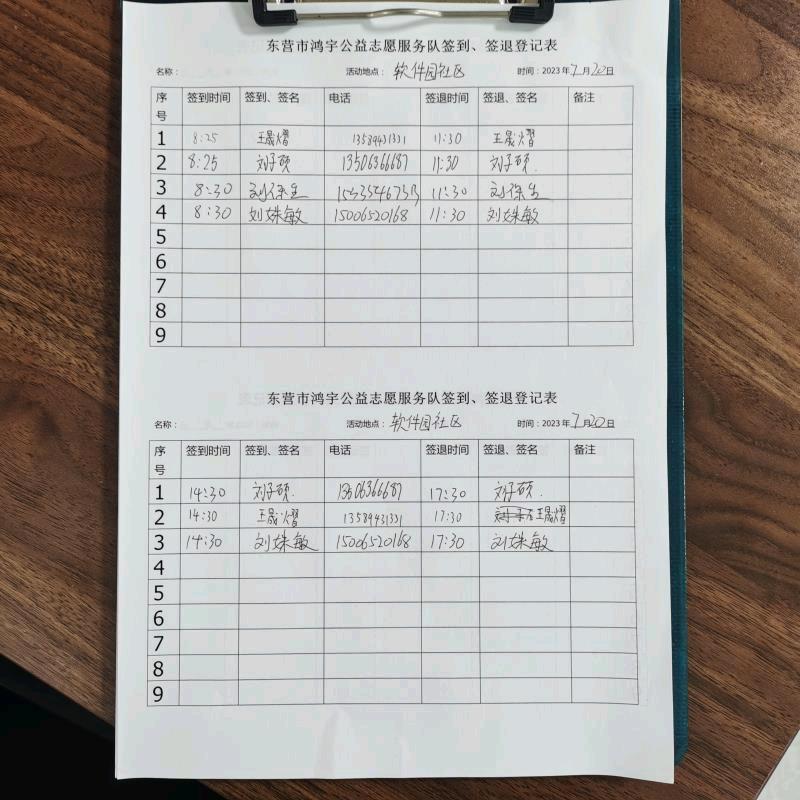 东营市鸿宇公益志愿服务队签到、签退登记表
名称： 活动地点： 软件园社区 时间：2023年7月20日
序号 签到时间 签到、签名 电话 签退时间 签退、签名 备注
1 8:25 王晟熠 13589431331 11:30 王晟熠
2 8:25 刘子硕 13506366687 11:30 刘子硕
3 8:30 11:30
4 8:30 刘姝敏 15006520168 11:30 刘姝敏
5
6
7
8
9
东营市鸿宇公益志愿服务队签到、签退登记表
名称： 活动地点： 软件园社区 时间：2023年7月20日
序号 签到时间 签到、签名 电话 签退时间 签退、签名 备注
1 14:30 刘子硕 13506366687 17:30 刘子硕
2 14:30 王晟熠 13589431331 17:30 王晟熠
3 14:30 刘姝敏 15006520168 17:30 刘姝敏
4
5
6
7
8
9